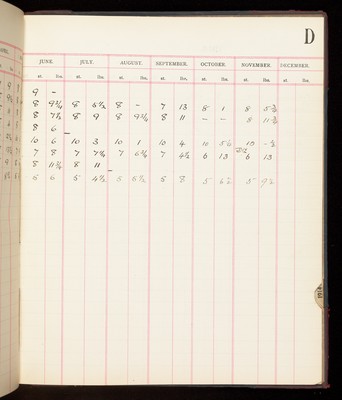 D
JUNE. JULY. AUGUST. SEPTEMBER. OCTOBER. NOVEMBER. DECEMBER.
st. lbs. st. lbs. st. lbs. st. lbs. st. lbs. st. lbs. st. lbs.
9 -
8 9¾ 8 6½ 8 - 7 13 8 1 8
8 7½ 8 9 8 9¾ 8 11 - - 8 11¾
8 6 -
10 6 10 3 10 1 10 4 10 10 -½
7 8 7 7¼ 7 6¾ 7 4½ 6 13 6 13
8 11¾ 8 11 -
5 6 5 4½ 5 5½ 5 8 5 5